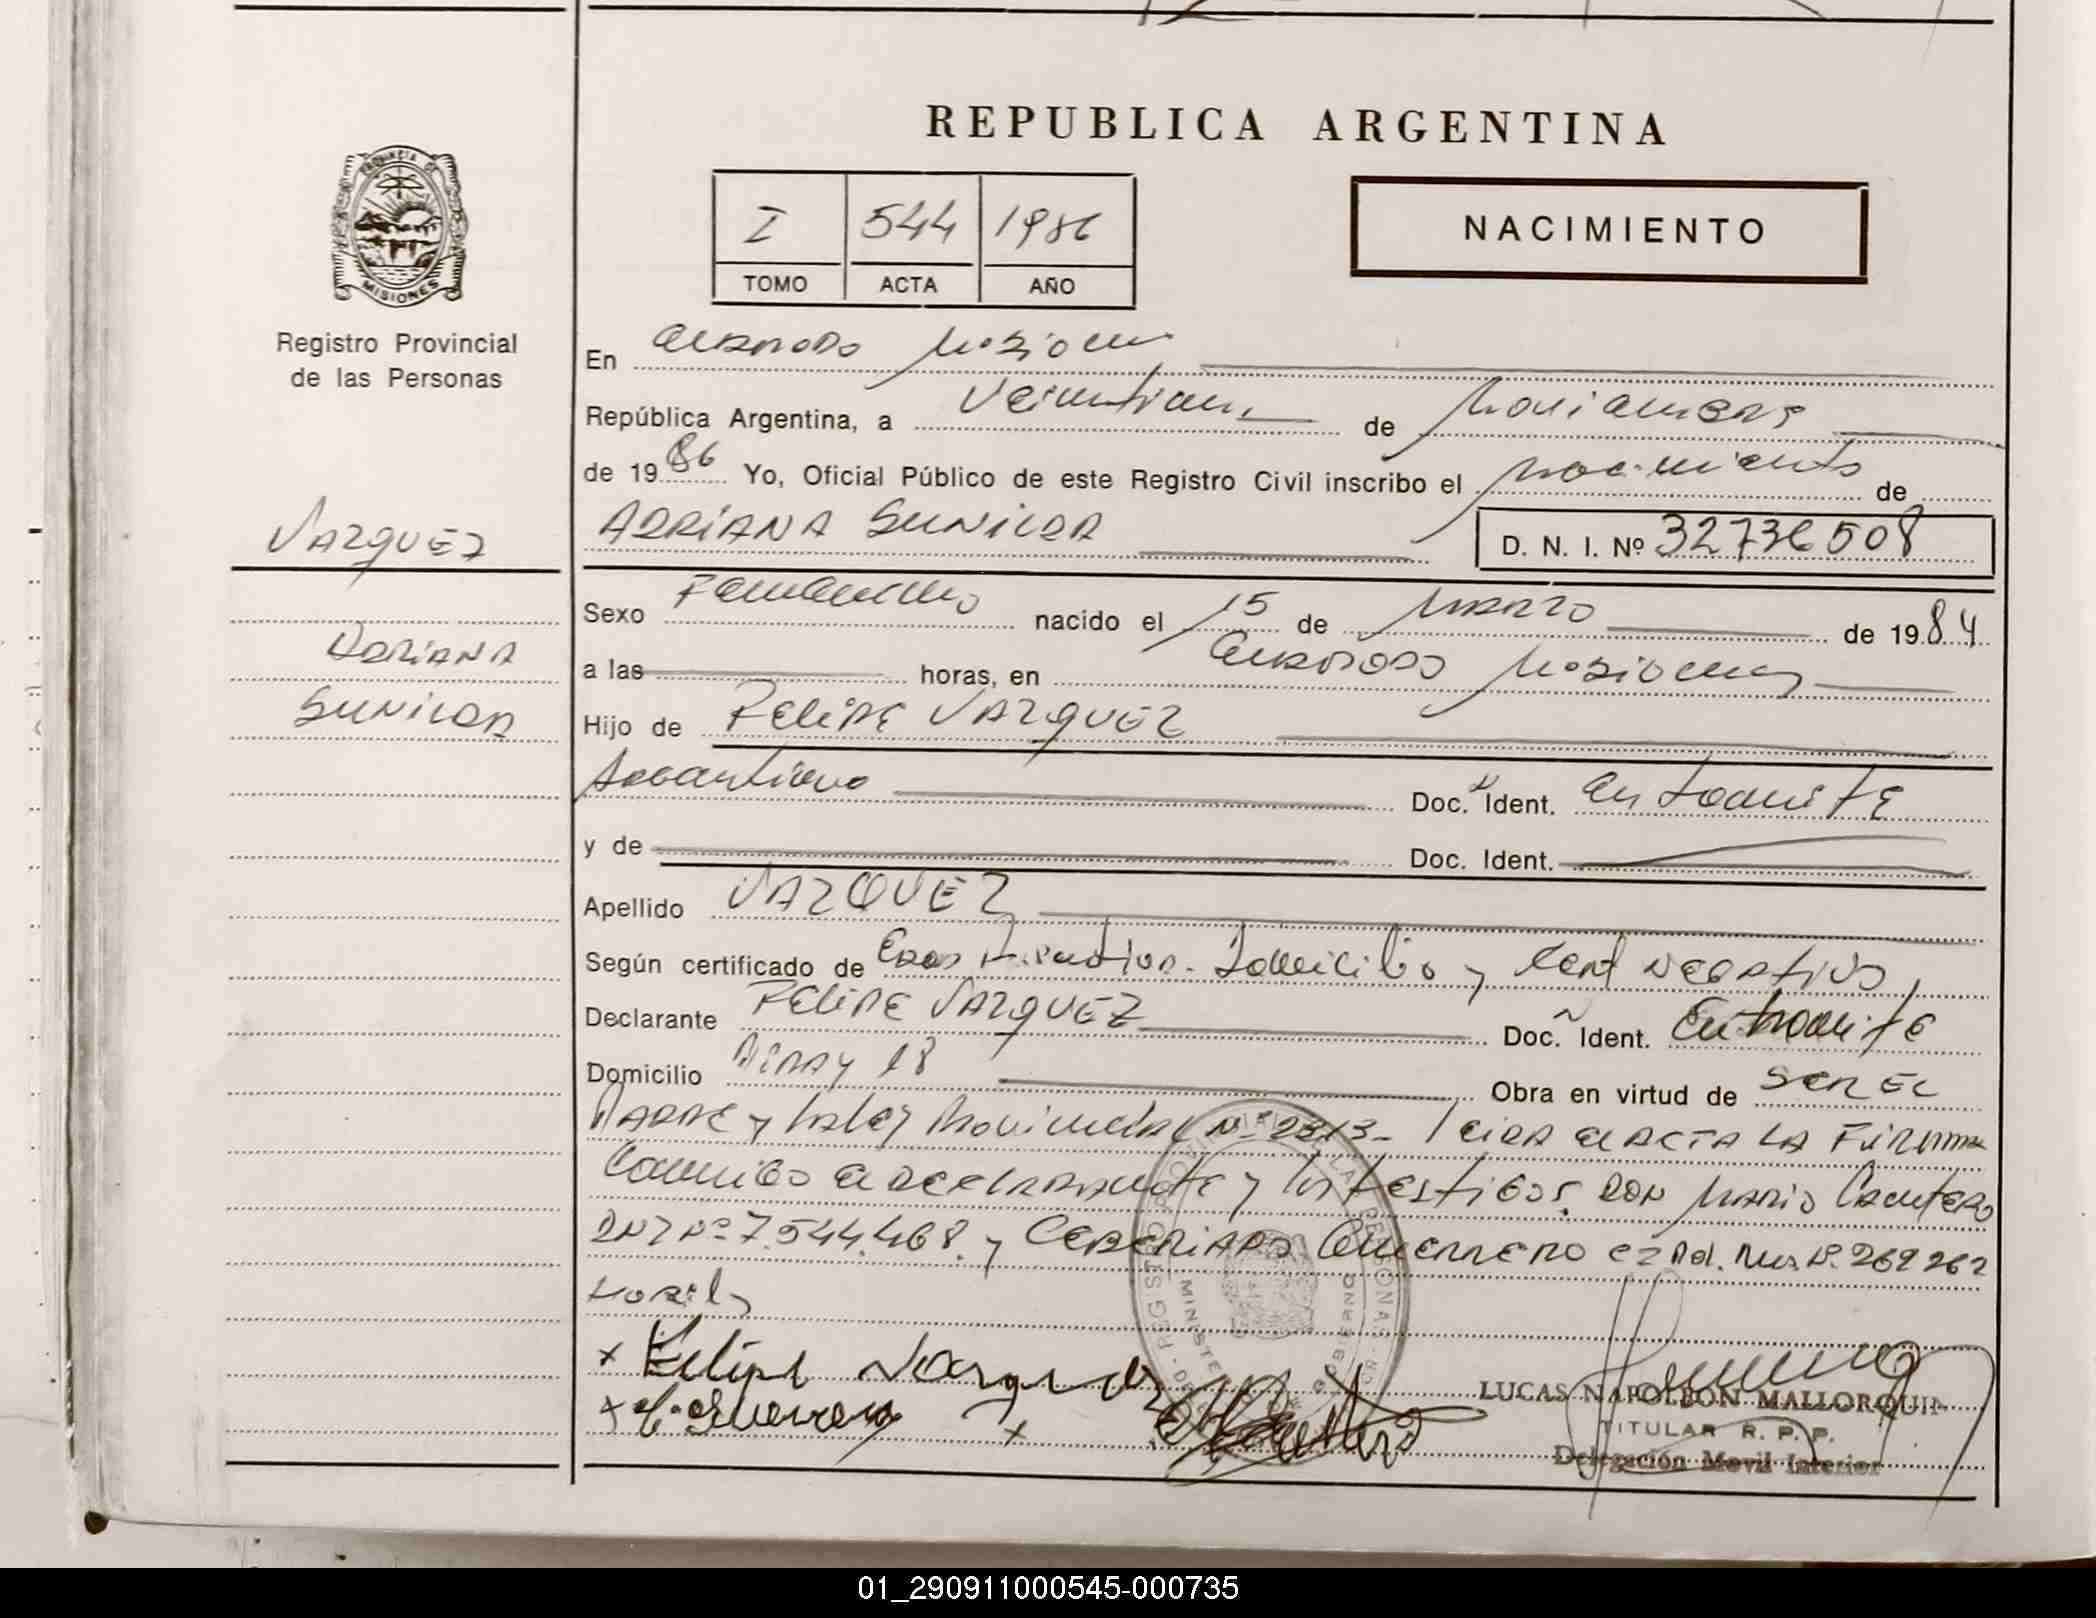 REPUBLICA ARGENTINA
PROVINCIA DE
MISIONES
Registro Provincial
de las Personas
I 544 1986
TOMO ACTA AÑO
NACIMIENTO
En Misiones
República Argentina, a de Noviembre
de 1986 Yo, Oficial Público de este Registro Civil inscribo el nacimiento de
VAZQUEZ
ADRIANA
D. N. I. Nº 32736508
Sexo Femenino nacido el 15 de Marzo de 1984
ADRIANA
a las horas, en Misiones
Hijo de FELIPE VAZQUEZ
Argentino Doc. Ident. En tramite
y de Doc. Ident.
Apellido VAZQUEZ
Según certificado de Domicilio y Cert NEGATIVO
Declarante FELIPE VAZQUEZ Doc. Ident. En tramite
Domicilio 18 Obra en virtud de SER EL
PADRE y Ley Provincial Nº 2313- Leida el ACTA LA FIRMAN
Conmigo el DECLARANTE y los testigos: DON MARIO Cantero
DNI Nº 7.544.468. y GUERRERO Nº 269262
x Felipe Vazquez
x Guerrero x
LUCAS NAPOLEON MALLORQUIN
TITULAR R. P. P.
Delegación Movil Interior
01_290911000545-000735